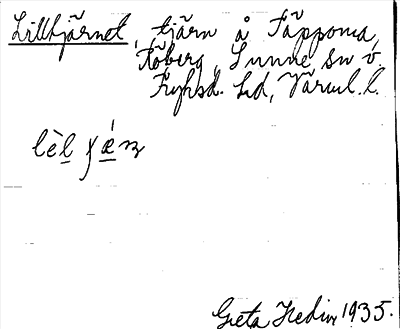 Lilltjärnet, tjärn å Täpporna,
Töberg, Sunne sn v.
Fryksd. hd, Värml. l.
lèl
Greta Hedin 1935.